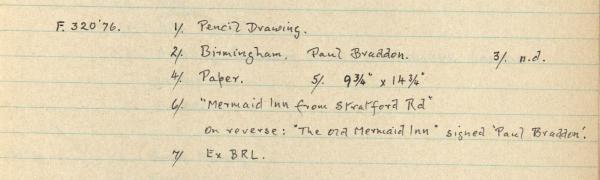 F. 320'76. 1/. Pencil Drawing.
2/. Birmingham. Paul Braddon. 3/. n.d.
4/. Paper. 5/. 9¾" x 14¾"
6/. "Mermaid Inn from Stratford Rd"
On reverse: "The old Mermaid Inn" signed 'Paul Braddon'.
7/. Ex BRL.